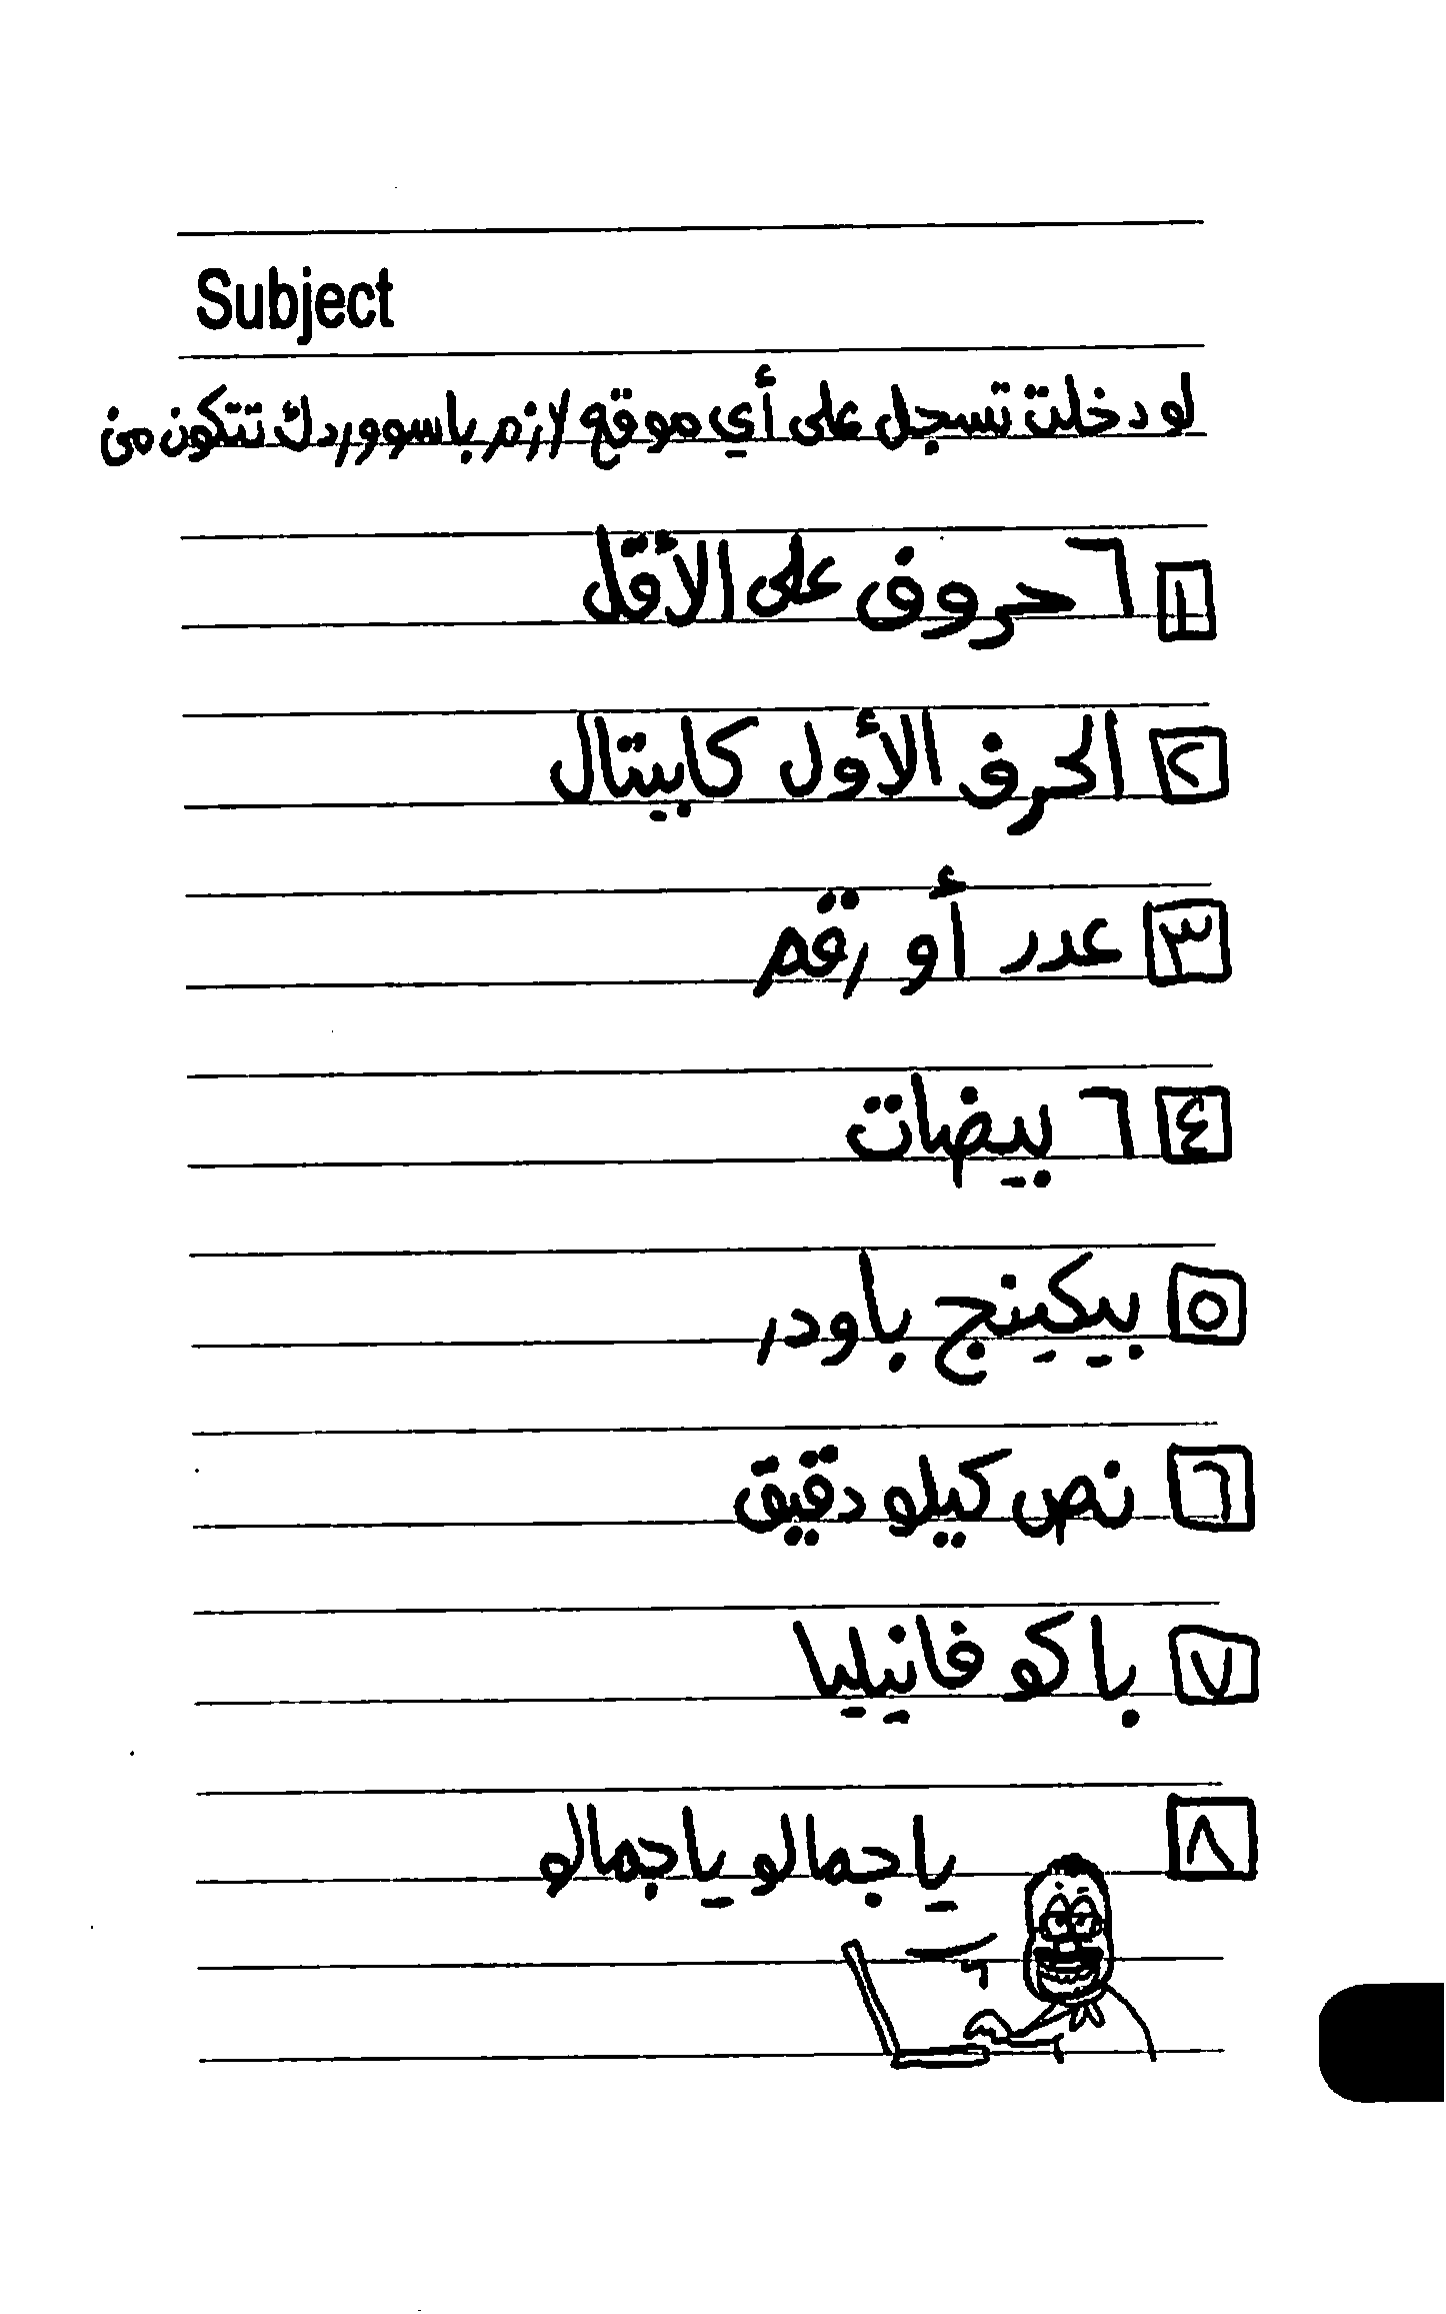 Subject
لو دخلت تسجل على أي موقع لازم باسووردك تتكون من
١ ٦ حروف على الأقل
٢ الحرف الأول كابيتال
٣ عدد أو رقم
٤ ٦ بيضات
٥ بيكينج باودر
٦ نص كيلو دقيق
٧ باكو فانيليا
٨ يا جمالو يا جمالو